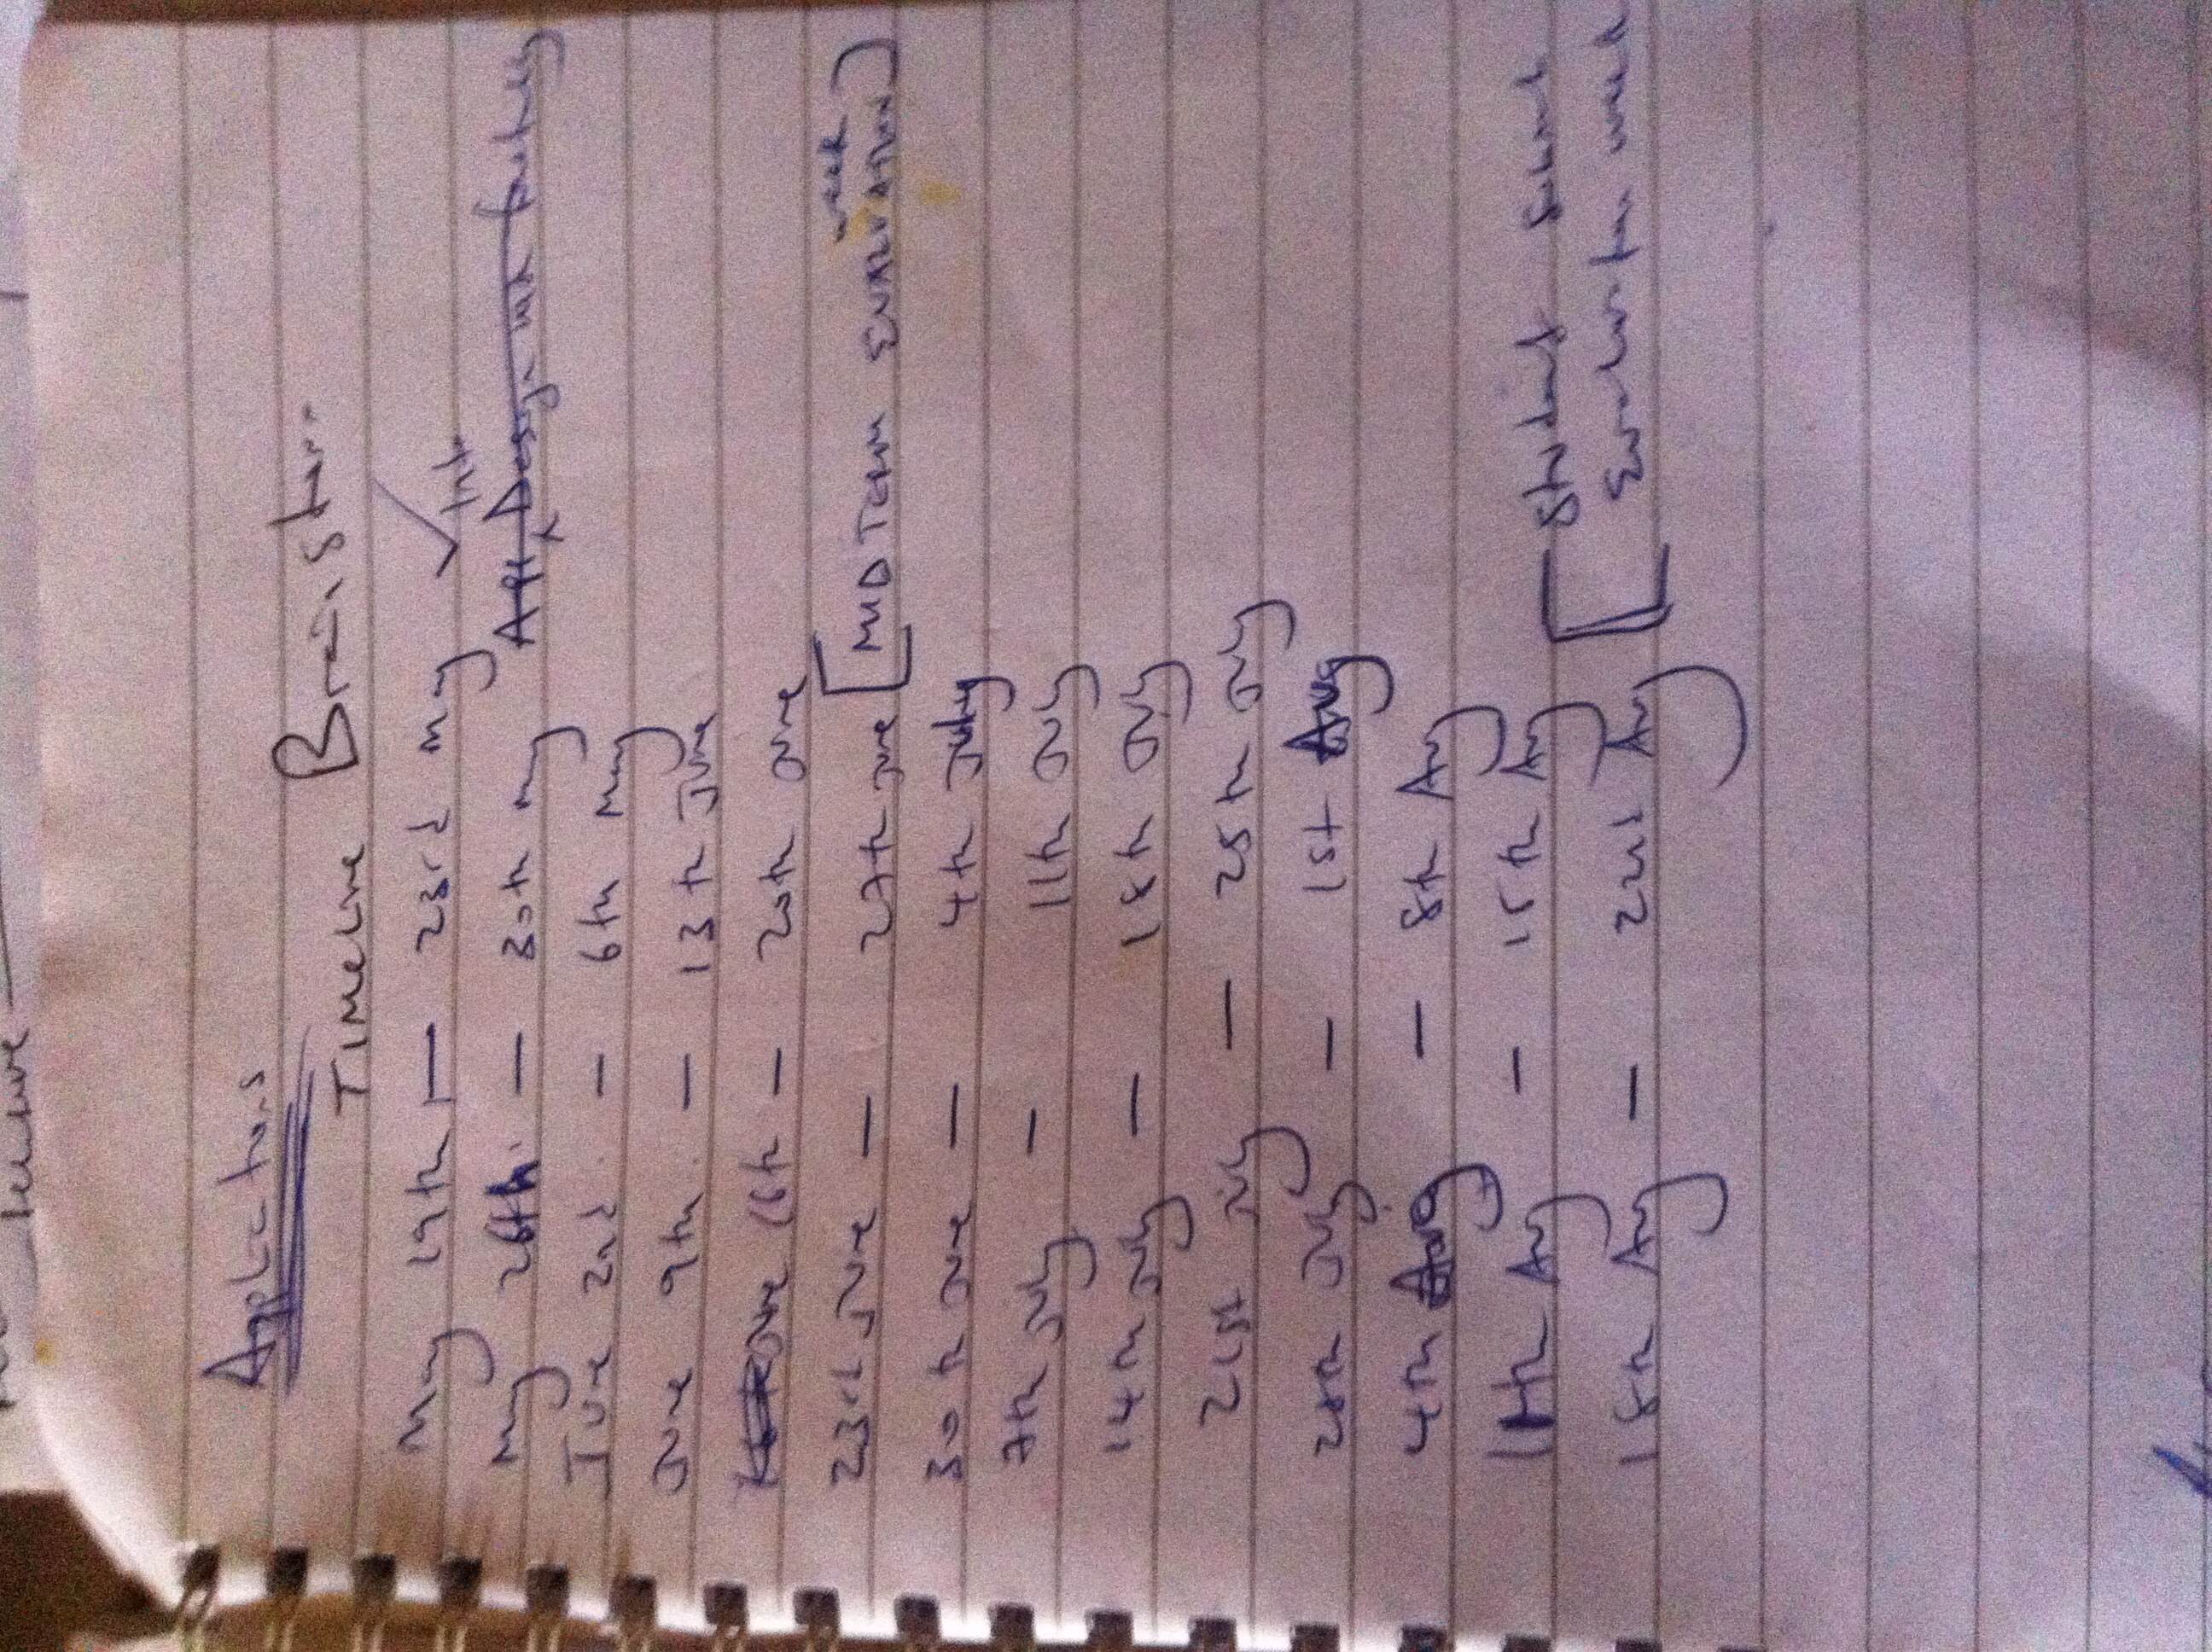 lecture
Applications
Timeline Brainstorm
May 19th — 23rd May ✓
Into
May 26th. — 30th May App Design with
June 2nd. — 6th May
June 9th. — 13th June
June 16th — 20th June
week
23rd June — 27th June [MID TERM EVALUATION]
30th June — 4th July
7th July — 11th July
14th July — 18th July
21st July — 25th July
28th July — 1st Aug
4th Aug — 8th Aug
11th Aug — 15th Aug
[ Student
18th Aug — 22nd Aug Evaluation week